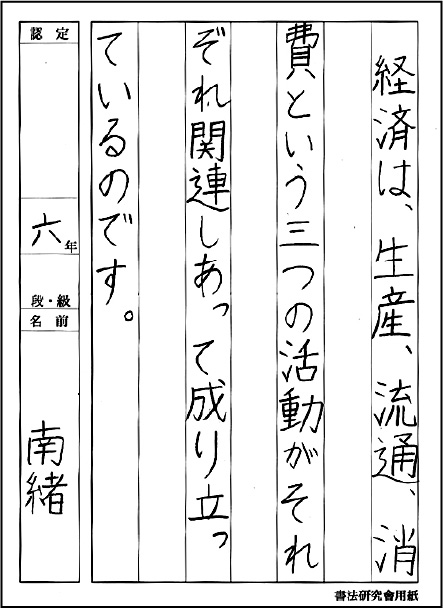 経済は、生産、流通、消
費という三つの活動がそれ
ぞれ関連しあって成り立っ
ているのです。
認定
六年
段・級
名前
南緒
書法研究會用紙